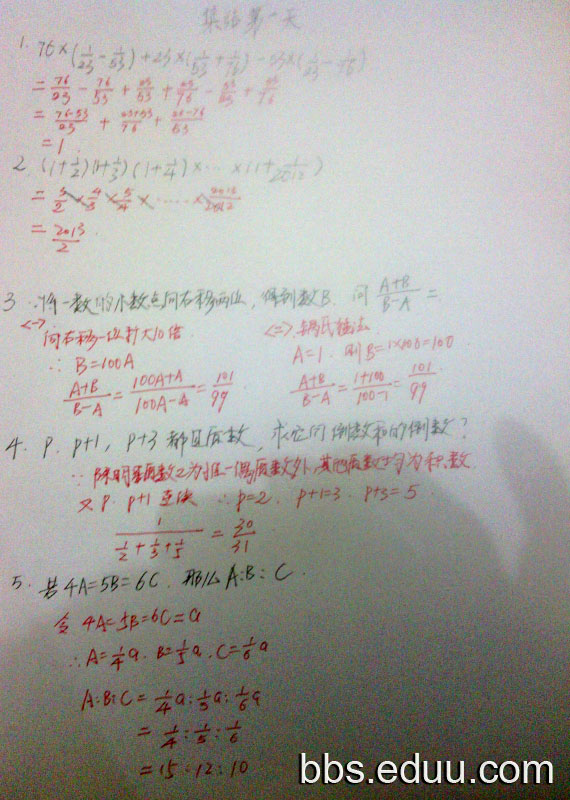 集训第一天
1. 76×(1/23-1/53)+23×(1/53+1/76)-53×(1/23-1/76)
=76/23-76/53+23/53+23/76-53/23+53/76
=(76-53)/23+(23+53)/76+(23-76)/53
=1.
2. (1+1/2)(1+1/3)(1+1/4)×…×(1+1/2012)
=3/2×4/3×5/4×……×2013/2012
=2013/2.
3. 将一数的小数点向右移两位, 得到数B. 问 (A+B)/(B-A)=
<一> 向右移一位扩大10倍.
∴B=100A
(A+B)/(B-A)=(100A+A)/(100A-A)=101/99
<二>
A=1. 则B=1×100=100.
(A+B)/(B-A)=(1+100)/(100-1)=101/99
4. P. P+1, P+3都是质数, 求它们倒数和的倒数?
∵除质数2为唯一偶质数外,其他质数均为奇数.
又P. P+1 ∴P=2. P+1=3. P+3=5.
1/(1/2+1/3+1/5)=30/31
5. 若4A=5B=6C. 那么A:B:C.
令4A=5B=6C=a
∴A=1/4a. B=1/5a. C=1/6a
A:B:C=1/4a:1/5a:1/6a
=1/4:1/5:1/6
=15:12:10
bbs.eduu.com